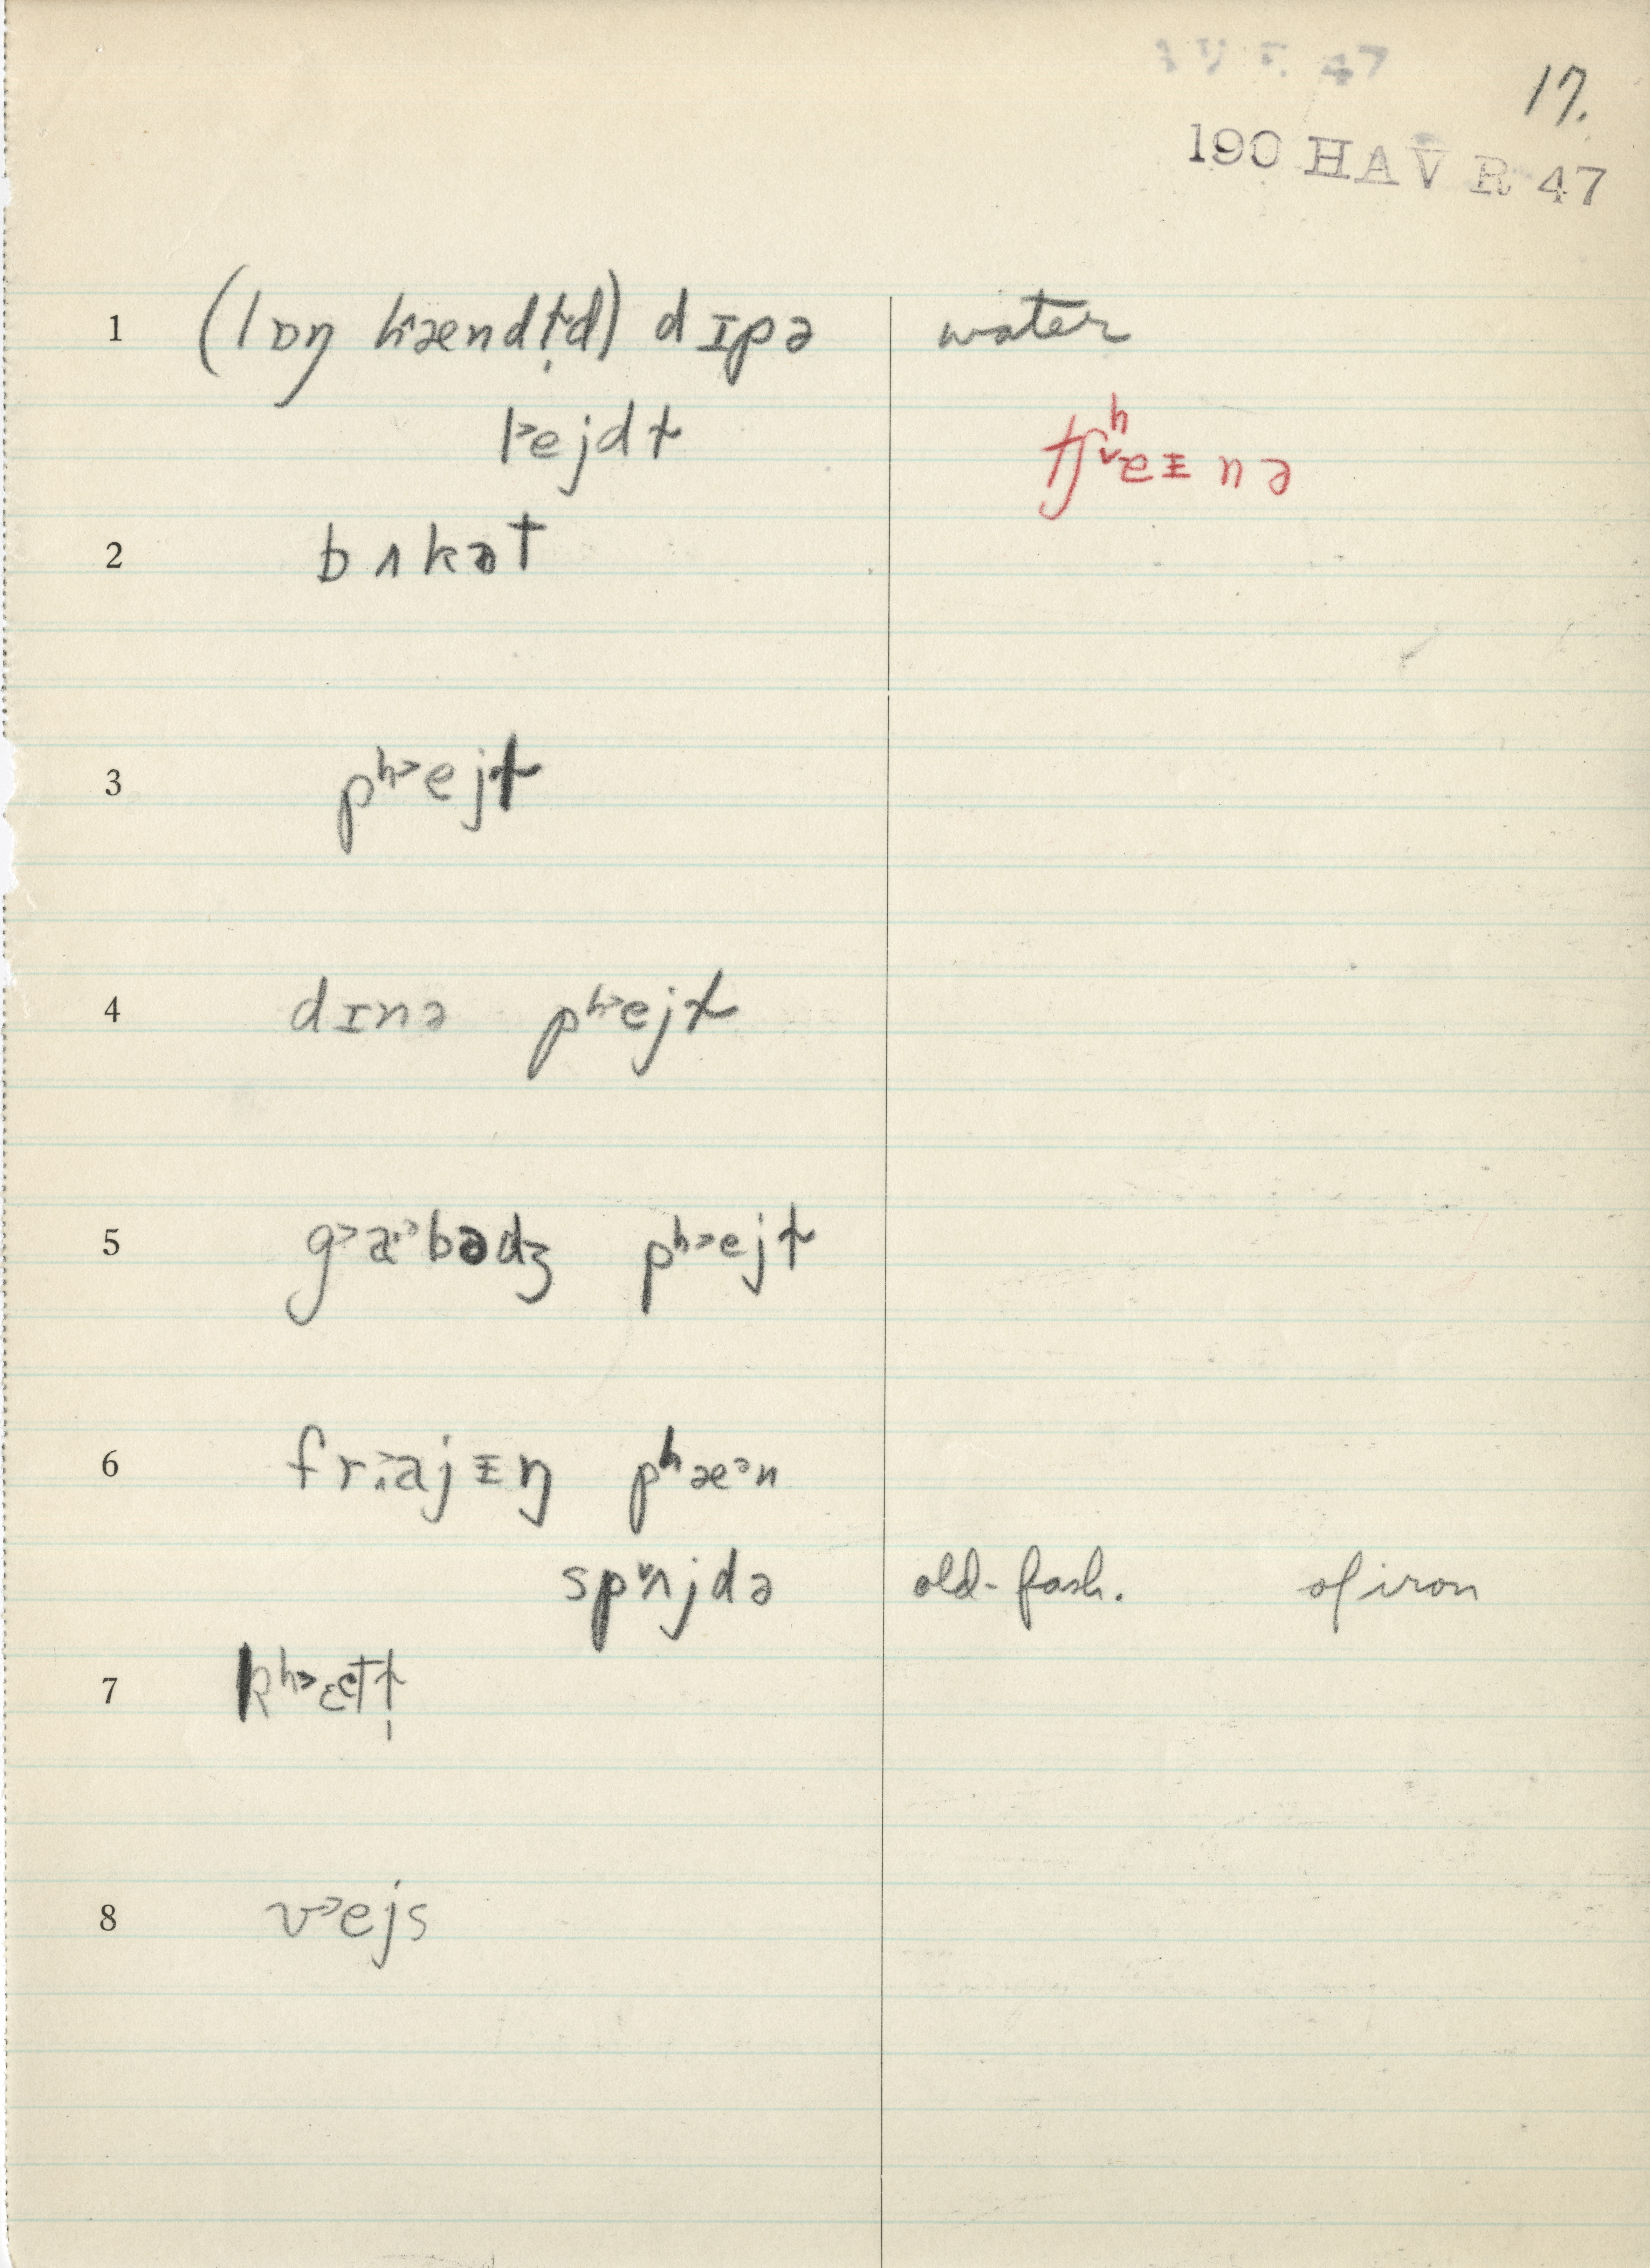 17.
190 HAV R 47
1 (lɒŋ hændɫ̩d) dɪpə water
p˃ejdɫ tʃʰ˅eᵻnə
2 bʌkət
3 pʰ˃ejɫ
4 dɪnə pʰ˃ejɫ
5 g˃a˃bədʒ pʰ˃ejɫ
6 fr˃ajᵻŋ pʰæᵊn
sp˅ʌjdə old-fash. of iron
7 kʰ˃ɛtɫ̩
8 v˃ejs